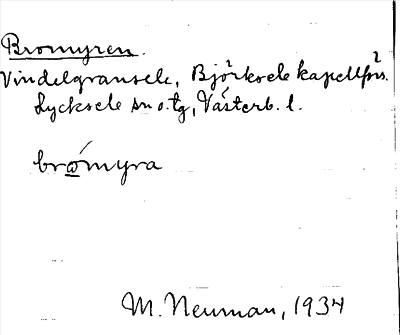 Bromyren.
Vindelgransele, Björksele kapellförs.
Lycksele sn o. tg, Västerb. l.
bro̲myra
M. Neuman, 1934